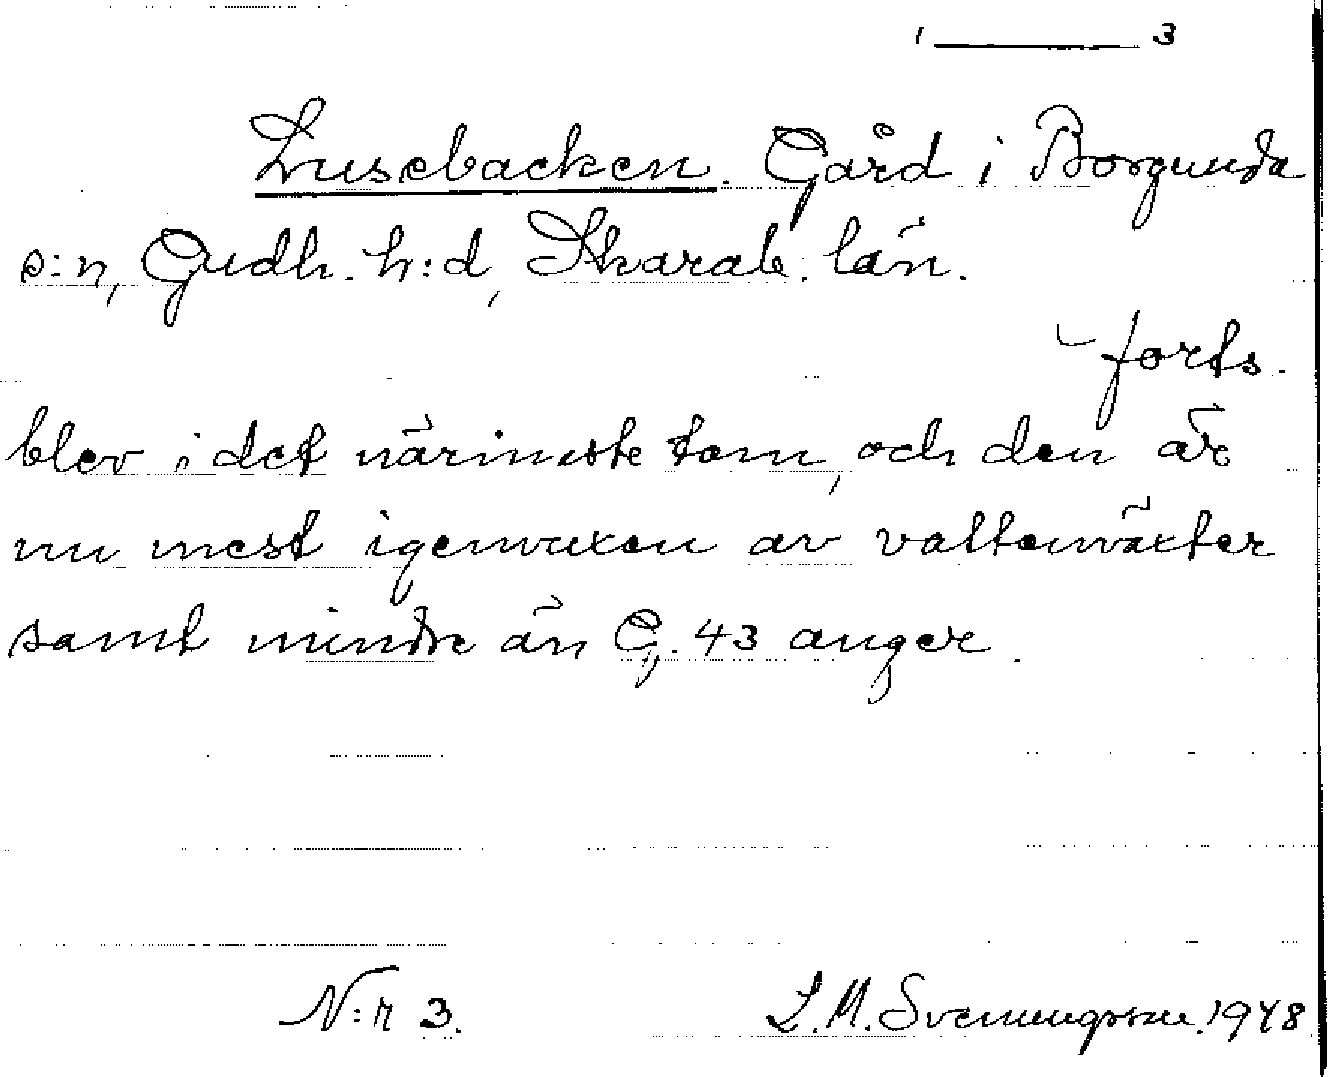 1 ——— 3
Lusebacken. Gård i Borgunda
s:n, Gudh. h:d, Skarab. län.
forts.
blev i det närmaste tom, och den är
nu mest igenvuxen av vattenväxter
samt mindre än G. 43 anger.
N:r 3. L.M. Svenungsson. 1948